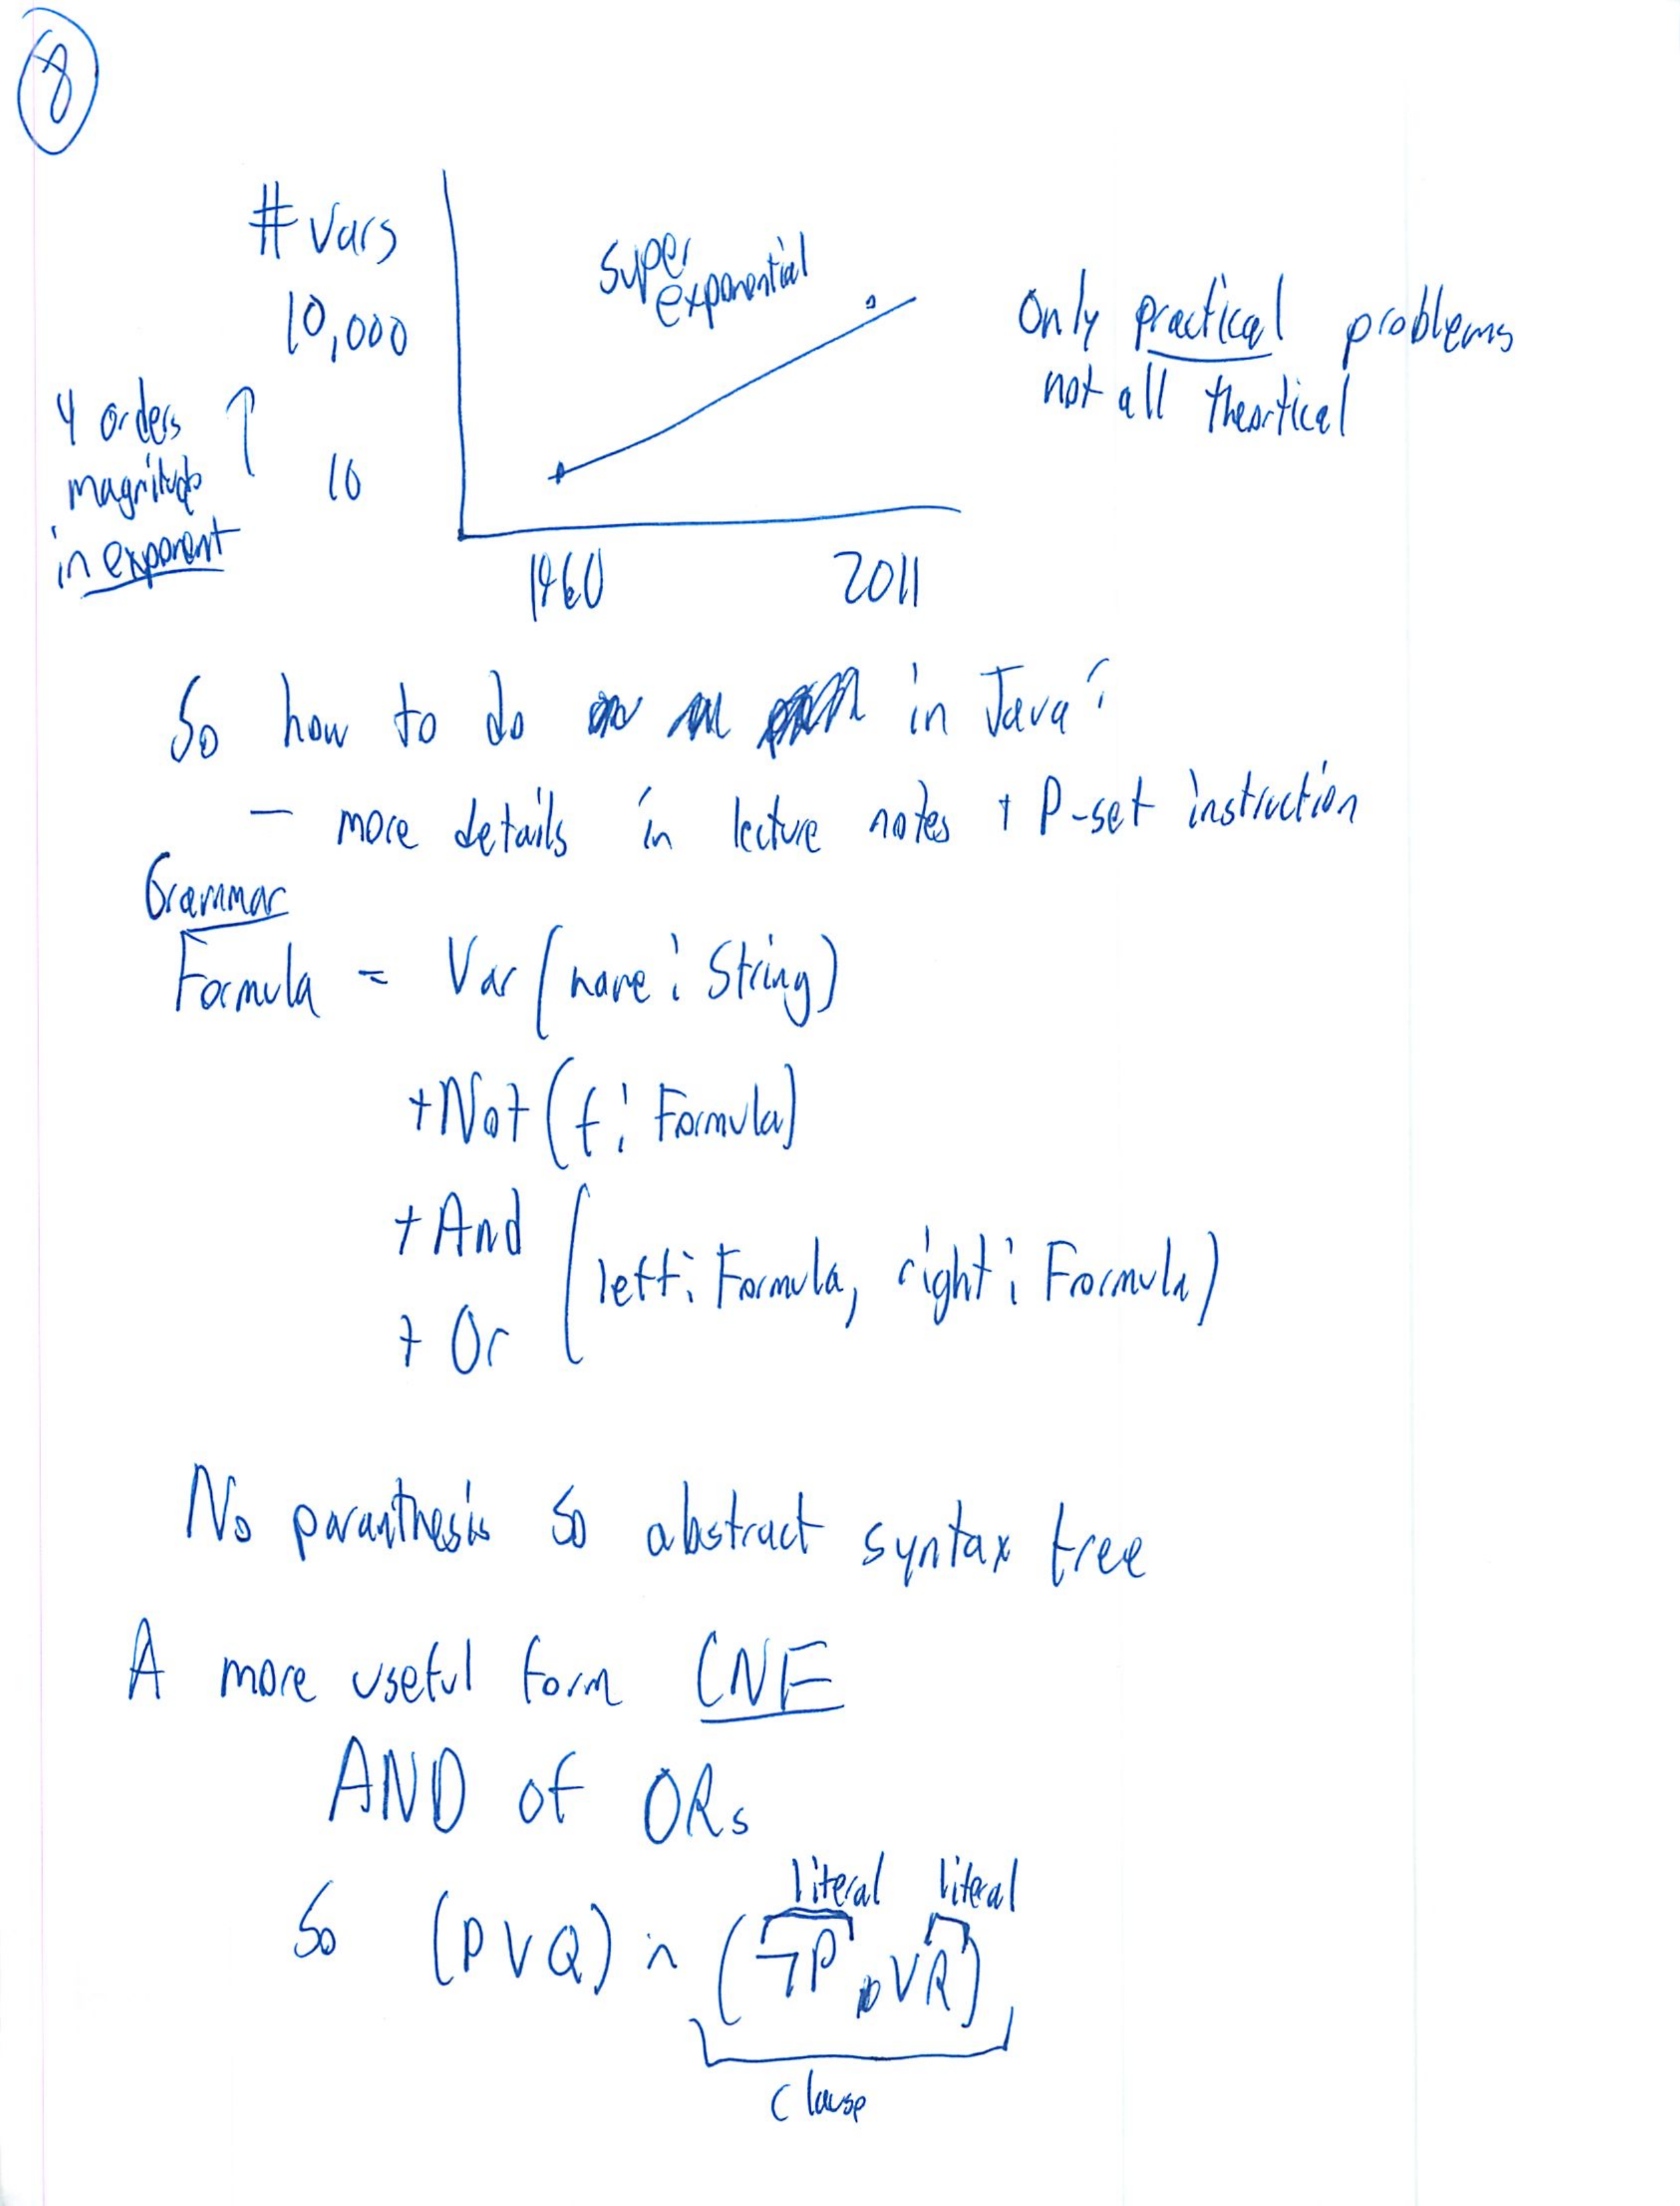 8
# Vars
10,000
10
4 orders
magnitude
in exponent
super
exponential
1960
2011
Only practical problems
not all theortical
So how to do in Java?
- more details in lecture notes + P-set instruction
Grammar
Formula = Var (name : String)
+ Not (f : Formula)
+ And
+ Or
(left : Formula, right : Formula)
No paranthesis so abstract syntax tree
A more useful form CNF
AND of ORs
literal literal
So (P ∨ Q) ∧ (¬P ∨ R)
Clause